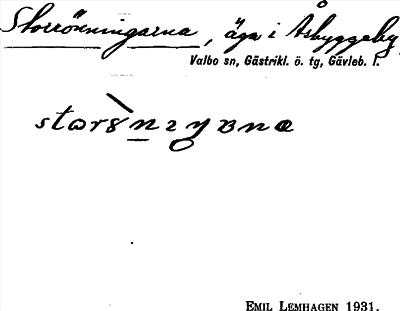 Storrönningarna, äga i Åbyggeby,
Valbo sn, Gästrikl. ö. tg, Gävleb. l.
EMIL LEMHAGEN 1931.